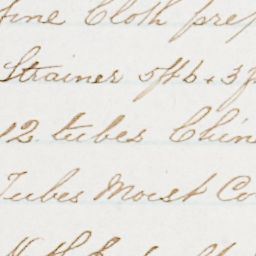 fine Cloth prep
Strainer 5ft 6 . 3f
12 tubes Chin
Tubes Moist Co